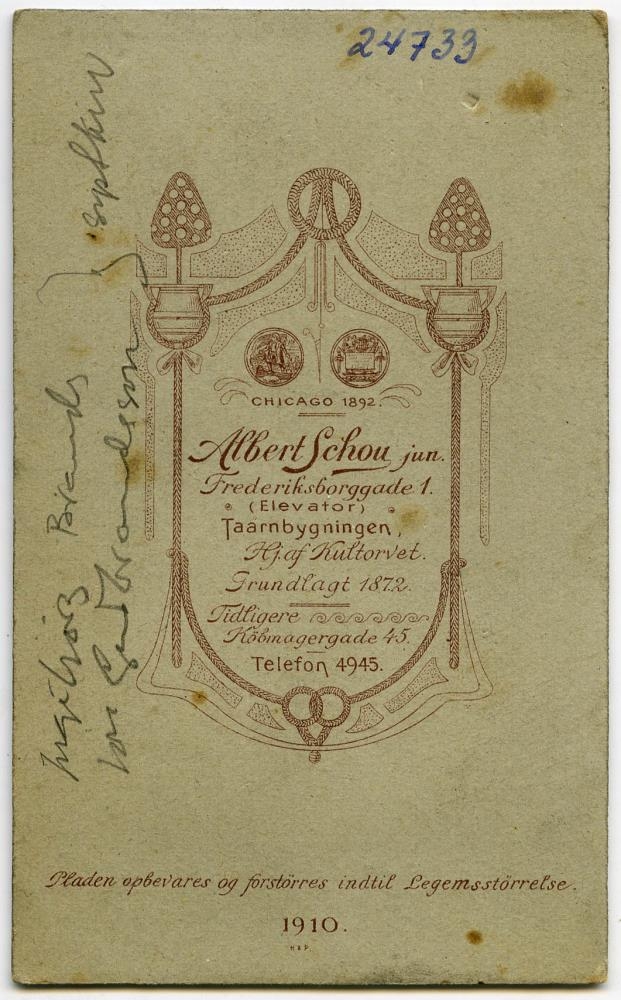 24733
CHICAGO 1892.
Albert Schou jun.
Frederiksborggade 1.
(Elevator)
Taarnbygningen,
Hj. af Kultorvet.
Grundlagt 1872.
Tidligere
Köbmagergade 45.
Telefon 4945.
Pladen opbevares og forstörres indtil Legemsstörrelse.
1910.
H & P.
Ingibjörg Brands
Jón Guðbrandsson